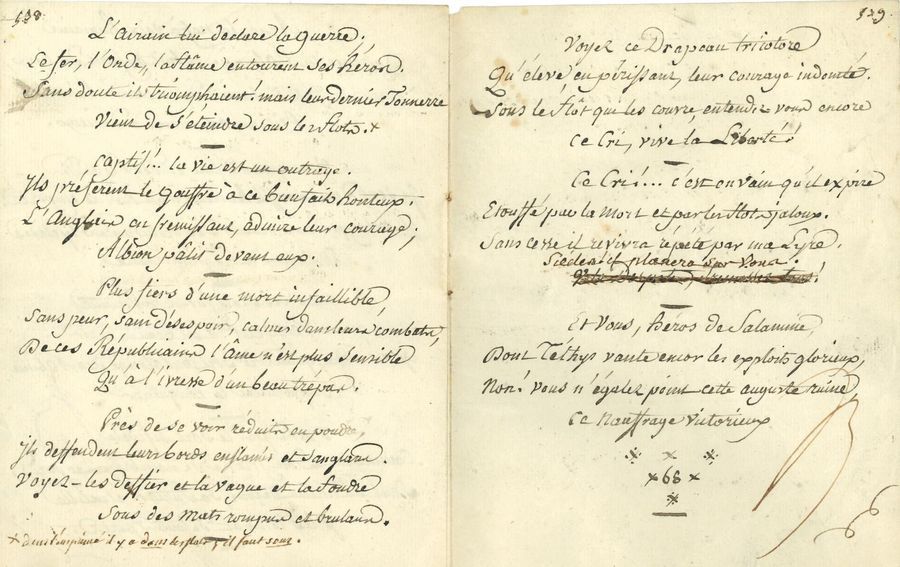 538.
L'Airain lui déclare la guerre.
Le fer, l'Onde, la flâme entourent ses héros.
Sans doute ils triomphaient! mais leur dernier Tonnerre
Vient de s'éteindre sous les flots. +
Captifs!.. la vie est un outrage.
Ils préferent le gouffre à ce bienfaits honteux.
L'Anglais en fremissant, admire leur courage;
Albion pâlit devant eux.
Plus fiers d'une mort infaillible,
Sans peur, sans désespoir, calmes dans leurs combats,
De ces Républicains l'âme n'est plus sensible
Qu'à l'ivresse d'un beau trépas.
Près de se voir réduits en poudre,
Ils deffendent leurs bords enflamés et sanglans.
Voyez-les deffier et la vague et la foudre
Sous des mats rompus et brulans.
+ dans l'imprimé il y a dans les flots, il faut sous.
539.
Voyez ce Drapeau tricolore
Qu'éleve en périssant, leur courage indomté.
Sous le flôt qui les couvre, entendez vous encore
Ce Cri, vive la Liberté!
Ce Cri!... c'est en vain qu'il expire
Etouffé par la Mort et par les flots jaloux.
Sans cesse il revivra répété par ma Lyre.
Siècles il planera sur vous.
Et Vous, héros de Salamine,
Dont Téthys vante encor les exploits glorieux,
Non! vous n'égalez point cette auguste ruine
Ce Naufrage victorieux
68